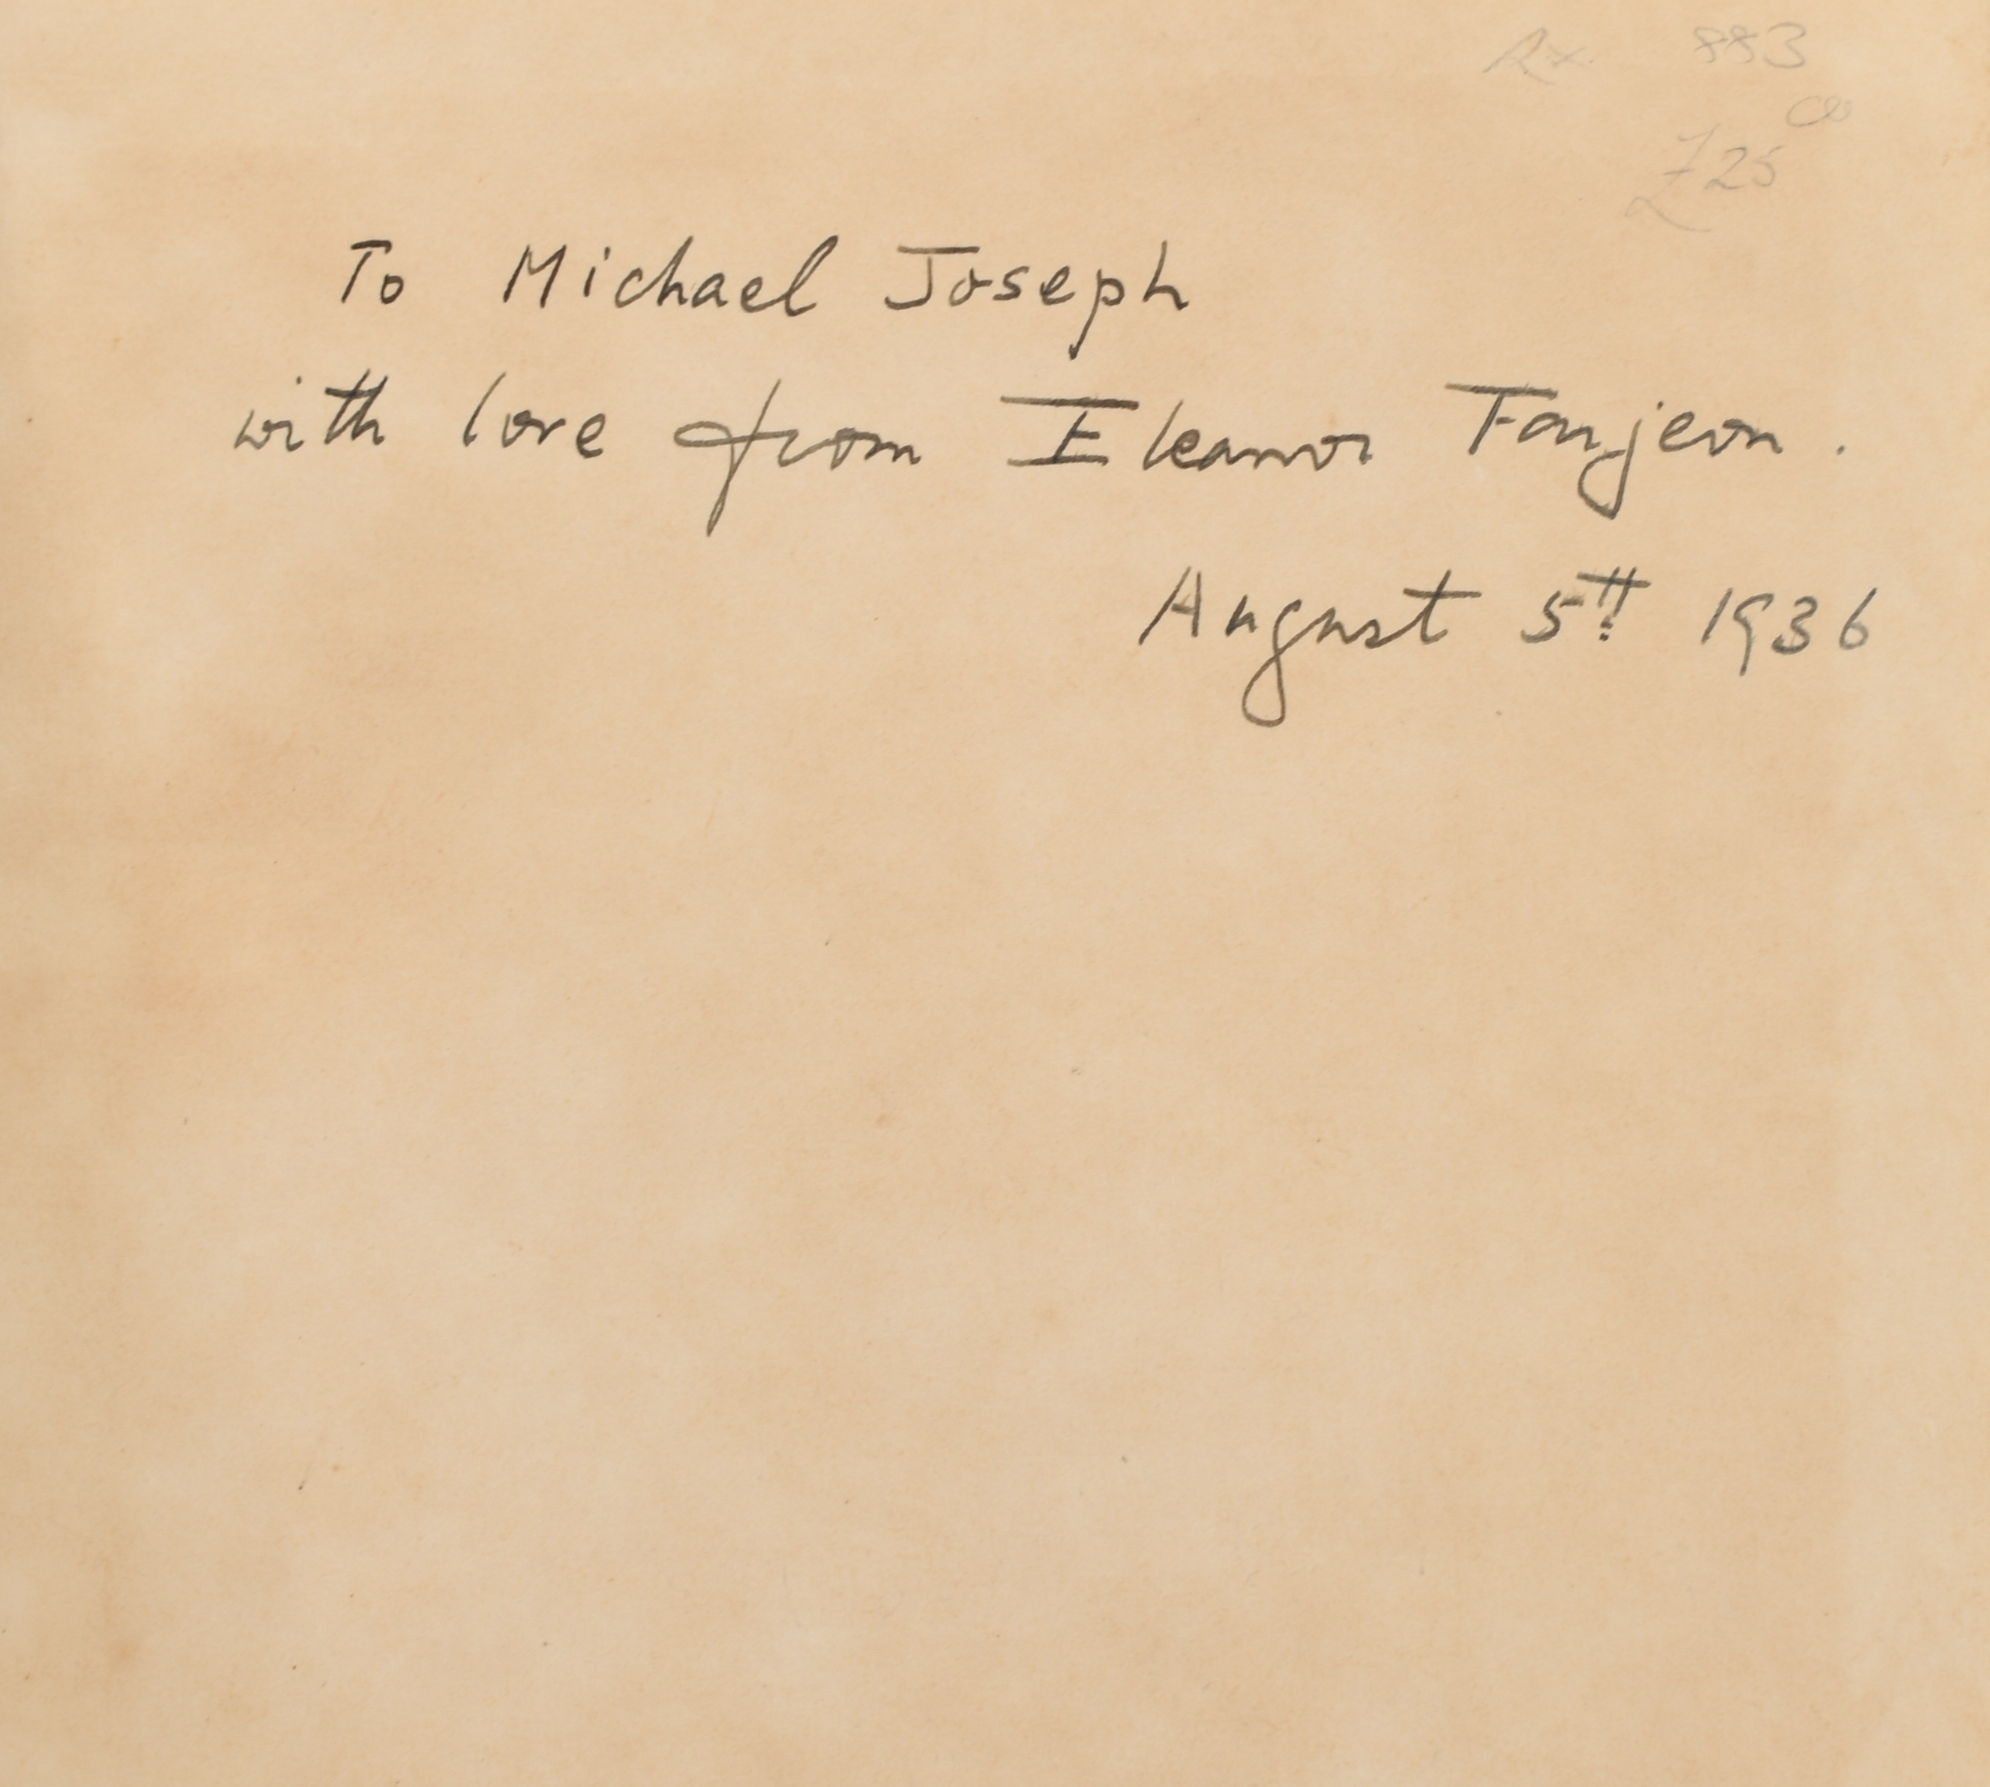 883
£25
To Michael Joseph
with love from Eleanor Farjeon.
August 5th 1936